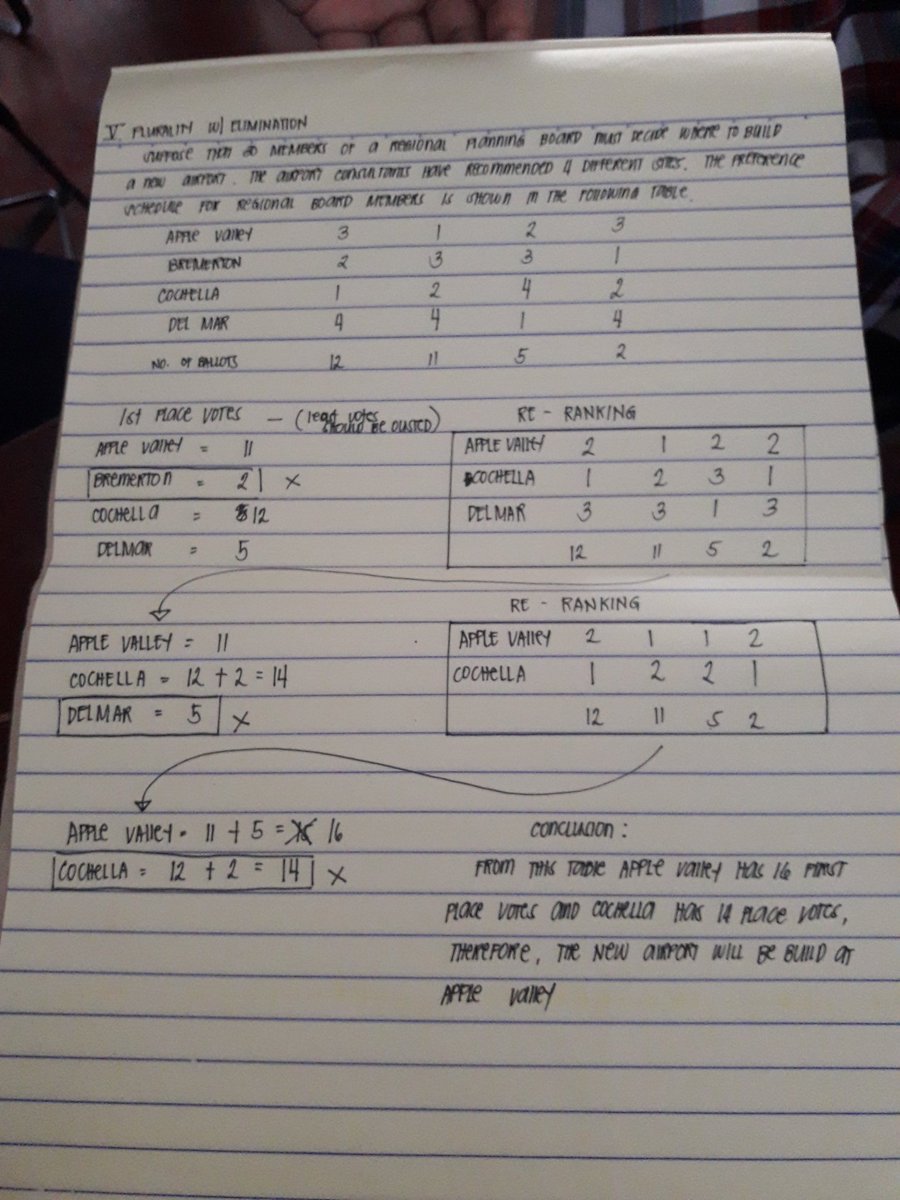 V. PLURALITY W/ ELIMINATION
SUPPOSE THAT 30 MEMBERS OF A REGIONAL PLANNING BOARD MUST DECIDE WHERE TO BUILD
A NEW AIRPORT. THE AIRPORT CONSULTANTS HAVE RECOMMENDED 4 DIFFERENT SITES. THE PREFERENCE
SCHEDULE FOR REGIONAL BOARD MEMBERS IS SHOWN IN THE FOLLOWING TABLE.
APPLE VALLEY 3 1 2 3
BREMERTON 2 3 3 1
COCHELLA 1 2 4 2
DEL MAR 4 4 1 4
NO. OF BALLOTS 12 11 5 2
1st PLACE VOTES — (least votes SHOULD BE OUSTED)
APPLE VALLEY = 11
BREMERTON = 2 X
COCHELLA = 12
DELMAR = 5
RE - RANKING
APPLE VALLEY 2 1 2 2
COCHELLA 1 2 3 1
DELMAR 3 3 1 3
12 11 5 2
APPLE VALLEY = 11
COCHELLA = 12 + 2 = 14
DELMAR = 5 X
RE - RANKING
APPLE VALLEY 2 1 1 2
COCHELLA 1 2 2 1
12 11 5 2
APPLE VALLEY = 11 + 5 = 16
COCHELLA = 12 + 2 = 14 X
CONCLUSION :
FROM THIS TABLE APPLE VALLEY HAS 16 FIRST
PLACE VOTES AND COCHELLA HAS 14 PLACE VOTES,
THEREFORE, THE NEW AIRPORT WILL BE BUILD AT
APPLE VALLEY